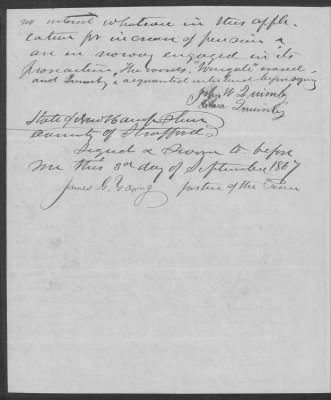 no interest whatever in this appli-
cation for increase of pension &
are in noway engaged in its
prosecution, The words "Wingate" erased
and Quimby & sequential interlined before signing
John W Quimby
Quimby
State of New Hampshire
County of Strafford
Signed & Sworn to before
me this 3rd day of September 1867
James C. Young Justice of the Peace